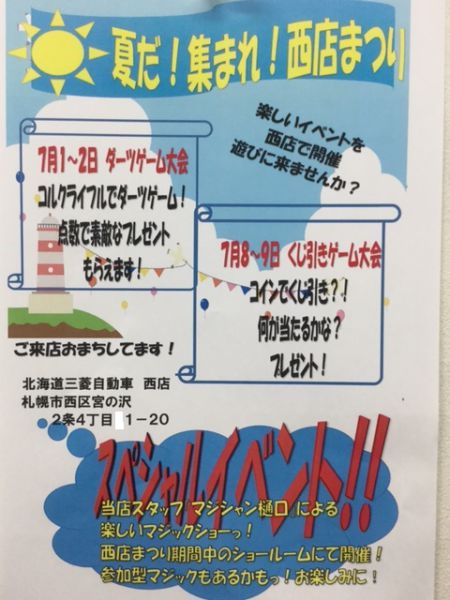 夏だ！集まれ！西店まつり
楽しいイベントを
西店で開催
遊びに来ませんか？
7月1～2日 ダーツゲーム大会
コルクライフルでダーツゲーム！
点数で素敵なプレゼント
もらえます！
7月8～9日 くじ引きゲーム大会
コインでくじ引き？！
何が当たるかな？
プレゼント！
ご来店おまちしてます！
北海道三菱自動車 西店
札幌市西区宮の沢
2条4丁目 1－20
スペシャルイベント!!
当店スタッフ マジシャン樋口 による
楽しいマジックショーっ！
西店まつり期間中のショールームにて開催！
参加型マジックもあるかもっ！お楽しみに！